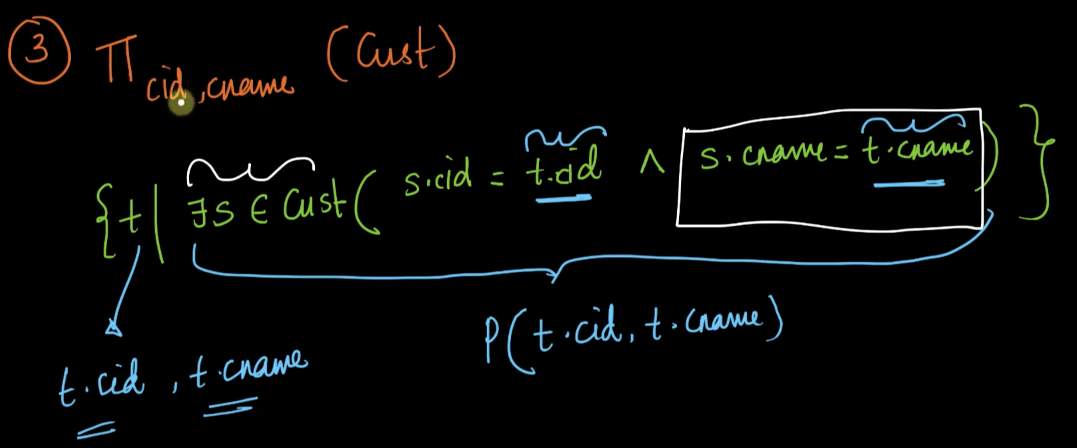 ③ Π cid, cname (Cust)
{t | ∃s ∈ Cust( s.cid = t.cid ∧ s.cname = t.cname ) }
P(t.cid, t.cname)
t.cid, t.cname